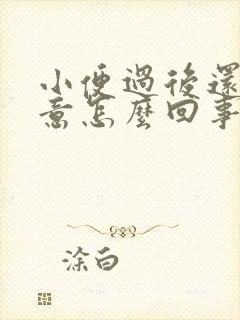 小便過後還
意怎麼回事
涂白